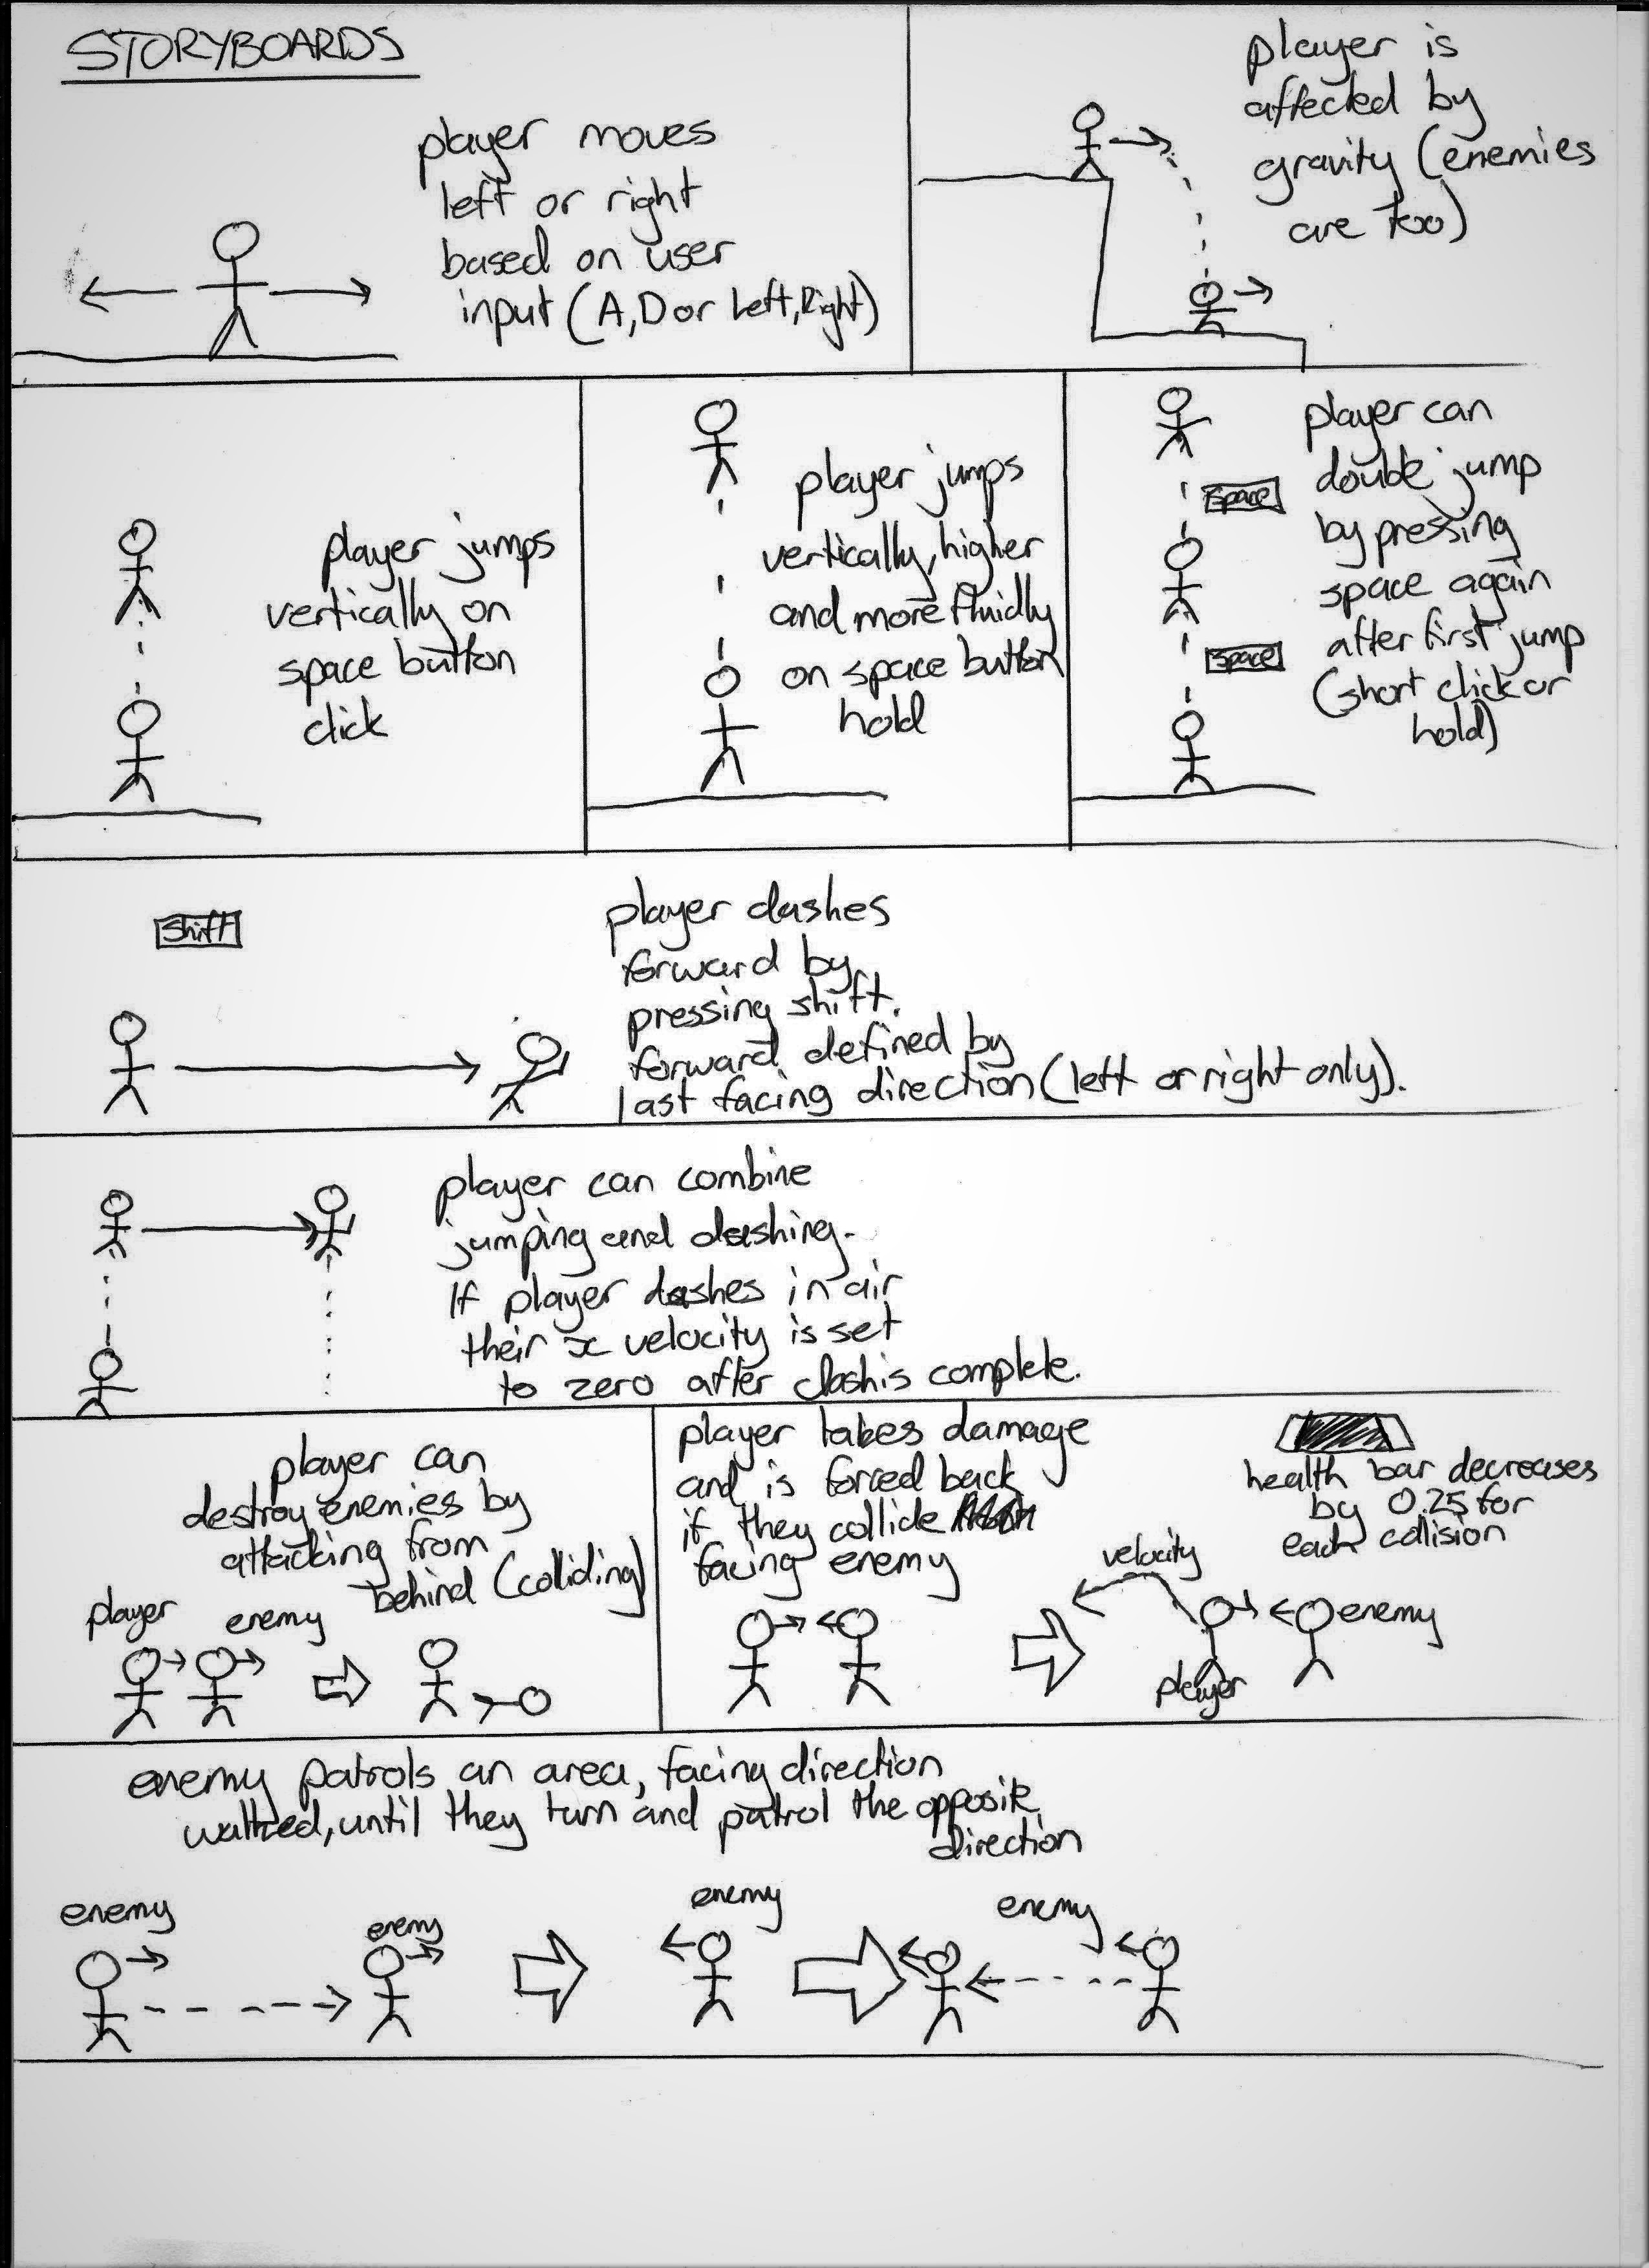 STORYBOARDS
player moves
left or right
based on user
input (A,D or Left,Right)
player is
affected by
gravity (enemies
are too)
player jumps
vertically on
space button
click
player jumps
vertically, higher
and more fluidly
on space button
hold
player can
double jump
by pressing
space again
after first jump
(short click or
hold)
space
space
shift
player dashes
forward by
pressing shift.
forward defined by
last facing direction (left or right only).
player can combine
jumping and dashing.
If player dashes in air
their x velocity is set
to zero after dash is complete.
player can
destroy enemies by
attacking from
behind (colliding)
player
enemy
player takes damage
and is forced back
if they collide
facing enemy
health bar decreases
by 0.25 for
each collision
velocity
enemy
player
enemy patrols an area, facing direction
walked, until they turn and patrol the opposite
direction
enemy
enemy
enemy
enemy